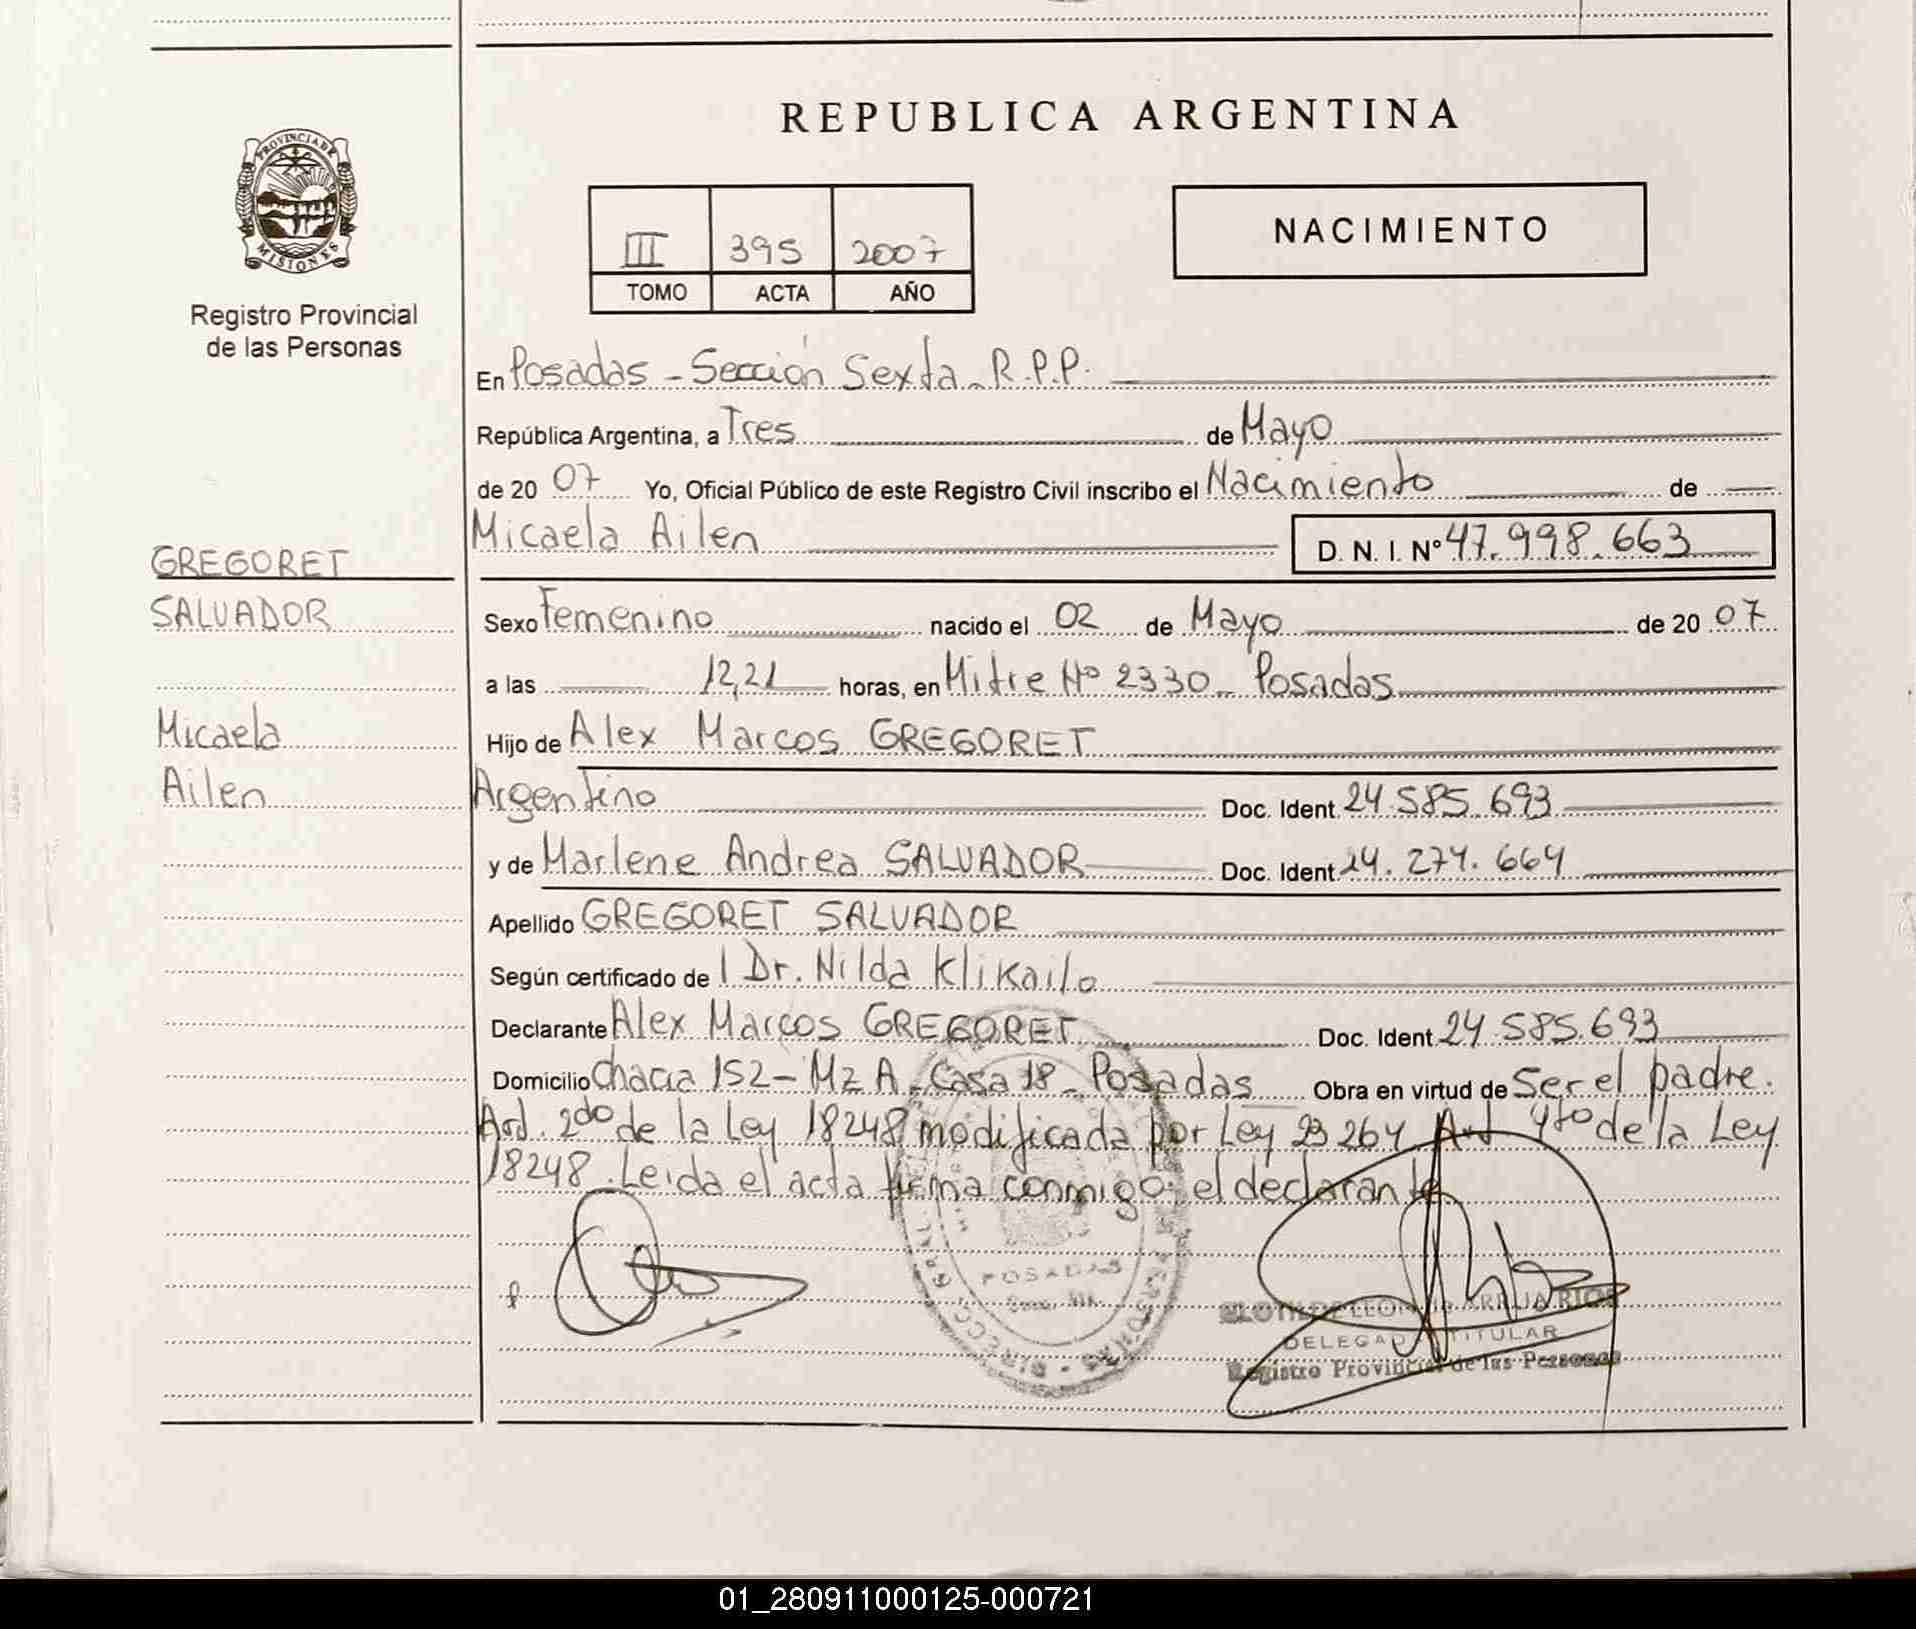 REPUBLICA ARGENTINA
PROVINCIA DE
MISIONES
Registro Provincial
de las Personas
III 395 2007
TOMO ACTA AÑO
NACIMIENTO
En Posadas - Sección Sexta - R.P.P.
República Argentina, a Tres de Mayo
de 20 07 Yo, Oficial Público de este Registro Civil inscribo el Nacimiento de
Micaela Ailen D. N. I. Nº 47.998.663
GREGORET
SALVADOR
Micaela
Ailen
Sexo Femenino nacido el 02 de Mayo de 20 07
a las 12,21 horas, en Mitre Nº 2330 - Posadas
Hijo de Alex Marcos GREGORET
Argentino Doc. Ident. 24.585.693
y de Marlene Andrea SALVADOR Doc. Ident 24.274.664
Apellido GREGORET SALVADOR
Según certificado de l Dr. Nilda Klikailo
Declarante Alex Marcos GREGORET Doc. Ident 24.585.693
Domicilio Chacra 152 - Mz A - Casa 18 - Posadas Obra en virtud de Ser el padre.
Art. 2do de la Ley 18248 modificada por Ley 23264 Art 4to de la Ley
18248. Leida el acta firma conmigo el declarante
POSADAS
DELEGADO TITULAR
Registro Provincial de las Personas
01_280911000125-000721